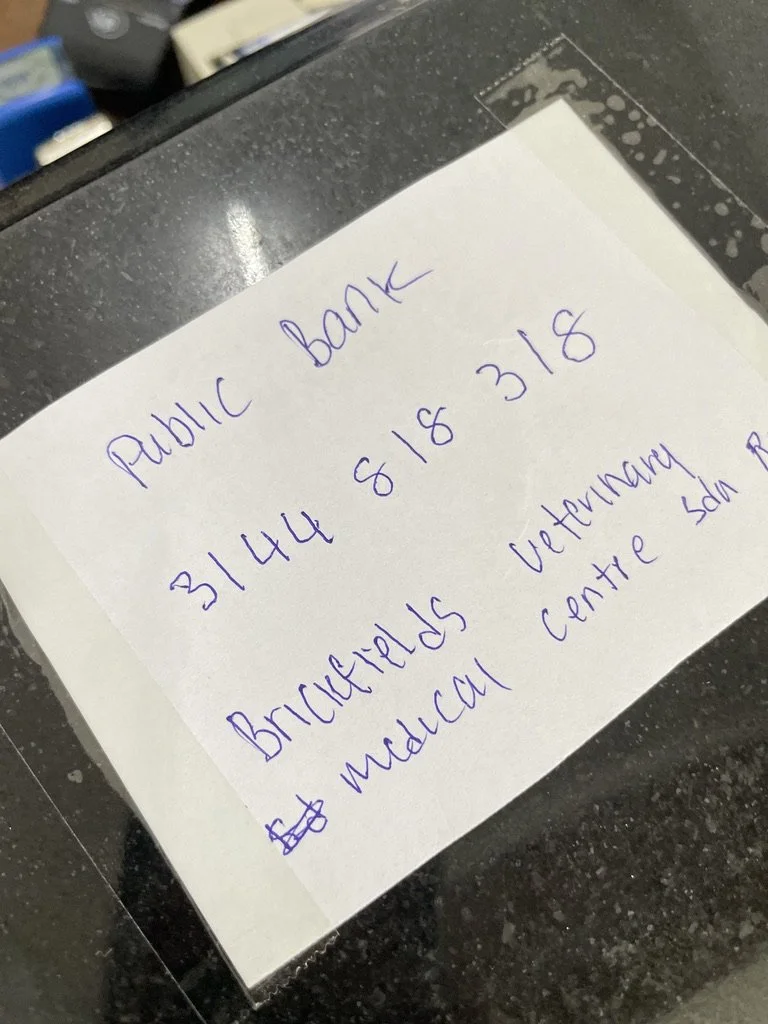 Public Bank
3144 818 318
Brickfields veterinary
medical centre sdn B